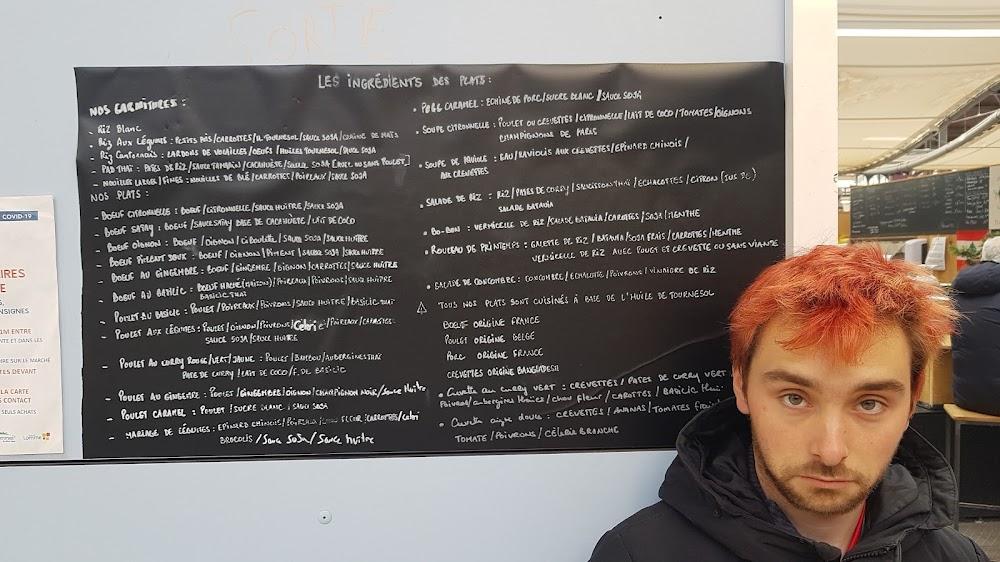 SORTIE
LES INGRÉDIENTS DES PLATS :
NOS GARNITURES :
- Riz Blanc
- Riz Aux LÉGUMES : PETITS POIS/CARROTTES/H.TOURNESOL/SAUCE SOJA/GRAINE DE MAÏS
- Riz Cantonais : LARDONS DE VOLAILLES/OEUFS/HUILLES TOURNESOL/SAUCE SOJA
- PAD THAÏ : PATES DE RIZ/SAUCE TAMARIN/CACAHUÈTE/SAUCE SOJA [AVEC OU SANS POULET]
- NOUILLES LARGES/FINES : NOUILLES DE BLÉ/CARROTTES/POIREAUX/SAUCE SOJA
NOS PLATS :
- BOEUF CITRONNELLE : BOEUF/CITRONNELLE/SAUCE HUÎTRE/SAUCE SOJA
- BOEUF SATAY : BOEUF/SAUCE SATAY BASE DE CACAHUÈTE/LAIT DE COCO
- BOEUF OIGNON : BOEUF/OIGNON/CIBOULETTE/SAUCE SOJA/SAUCE HUÎTRE
- BOEUF PIMENT DOUX : BOEUF/OIGNON/PIMENT/SAUCE SOJA/SAUCE HUÎTRE
- BOEUF AU GINGEMBRE : BOEUF/GINGEMBRE/OIGNON/CARROTTES/SAUCE HUÎTRE
- BOEUF AU BASILIC : BOEUF HACHÉ (MAISON)/POIREAUX/POIVRONS/SAUCE HUÎTRE
BASILIC THAÏ
- POULET AU BASILIC : POULET/POIREAUX/POIVRONS/SAUCE HUÎTRE/BASILIC THAÏ
- POULET AUX LÉGUMES : POULET/OIGNON/POIVRONS/Celerie/POIREAUX/CARROTTES
SAUCE SOJA/SAUCE HUITRE
- POULET AU CURRY ROUGE/VERT/JAUNE : POULET/BAMBOU/AUBERGINE THAÏ
PATE DE CURRY/LAIT DE COCO/F. DE BASILIC
- POULET AU GINGEMBRE : POULET/GINGEMBRE/OIGNON/CHAMPIGNON NOIRS/Sauce Huître
- POULET CARAMEL : POULET/SUCRE BLANC/SAUCE SOJA
- MARIAGE DE LÉGUMES : EPINARD CHINOIS/POIREAUX/CHOU FLEUR/CARROTTES/celeri
BROCOLIS/Sauce Soja/Sauce huître
• PORC CARAMEL : ECHINE DE PORC/SUCRE BLANC/SAUCE SOJA
• SOUPE CITRONNELLE : POULET OU CREVETTES/CITRONNELLE/LAIT DE COCO/TOMATES/OIGNONS
CHAMPIGNONS DE PARIS
• SOUPE DE RAVIOLE : EAU/RAVIOLIS AUX CREVETTES/EPINARD CHINOIS/
AUX CREVETTES
• SALADE DE RIZ : RIZ/PATES DE CURRY/SAUCISSON THAÏ/ECHALOTTES/CITRON (JUS DE)
SALADE BATAVIA
• BO-BUN : VERMICELLE DE RIZ/SALADE BATAVIA/CAROTTES/SOJA/MENTHE
• ROULEAU DE PRINTEMPS : GALETTE DE RIZ/BATAVIA/SOJA FRAIS/CAROTTES/MENTHE
VERMICELLE DE RIZ AVEC POULET ET CREVETTE OU SANS VIANDE
• SALADE DE CONCOMBRE : CONCOMBRE/ECHALOTTE/POIVRONS/VINAIGRE DE RIZ
⚠ TOUS NOS PLATS SONT CUISINÉS À BASE DE L'HUILE DE TOURNESOL
BOEUF ORIGINE FRANCE
POULET ORIGINE BELGE
PORC ORIGINE FRANCE
CREVETTES ORIGINE BANGLADESH
• Crevette au curry vert : CREVETTES/PATES DE CURRY VERT
Poivrons/aubergines thaïes/chou fleur/CAROTTES/BASILIC thaï
• Crevette aigre douce : CREVETTES/ANANAS/TOMATES fraîches
TOMATE/POIVRONS/CÉLERIE BRANCHE
COVID-19
AIRES
E
NSIGNES
1M ENTRE
NTE ET DANS LES
OIRE SUR LE MARCHÉ
TES DEVANT
LA CARTE
S CONTACT
SEULS ACHATS
Lomme